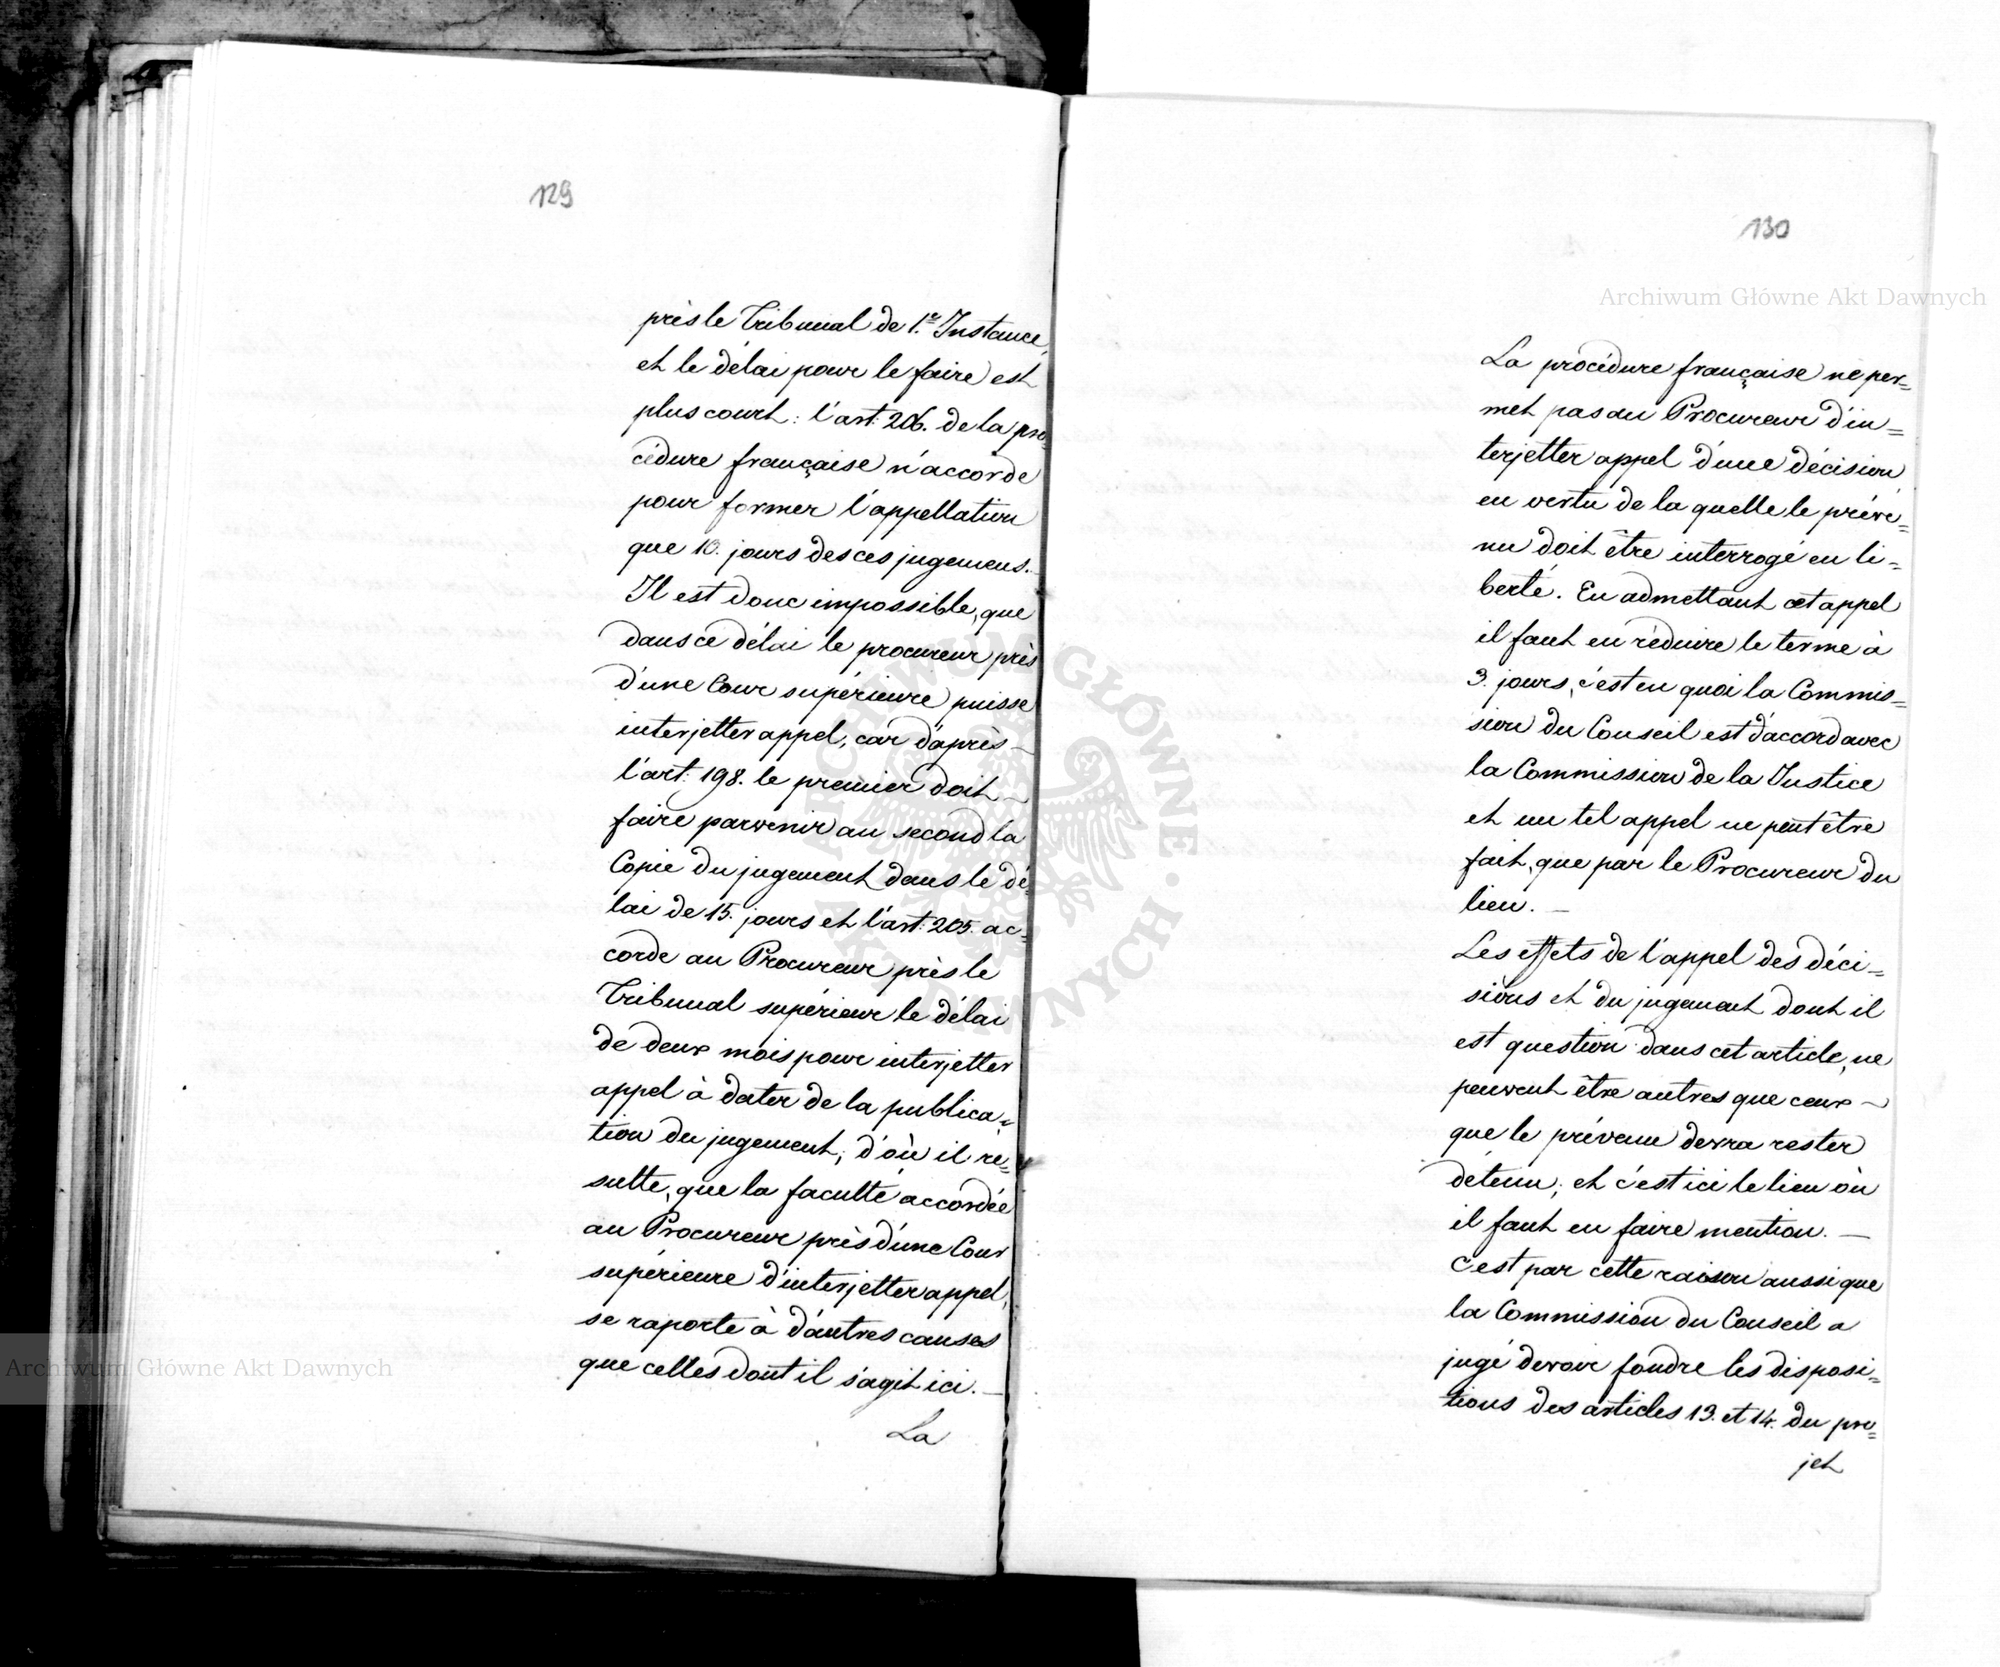 129
près le Tribunal de 1.re Instance,
et le délai pour le faire est
plus court: l'art: 206. de la pro=
cédure française n'accorde
pour former l'appellation
que 10. jours des ces jugemens.
Il est donc impossible, que
dans ce délai le procureur près
d'une Cour supérieure puisse
interjetter appel, car d'après
l'art: 198. le premier doit
faire parvenir au second la
Copie du jugement dans le dé=
lai de 15. jours et l'art: 205. ac=
corde au Procureur près le
Tribunal supérieur le délai
de deux mois pour interjetter
appel à dater de la publica=
tion du jugement; d'où il re=
sulte, que la faculté accordée
au Procureur près d'une Cour
supérieure d'interjetter appel,
se raporte à d'autres causes
que celles dont il s'agit ici. —
La
130
La procédure française ne per=
met pas au Procureur d'in=
terjetter appel d'une décision
en vertu de la quelle le préve=
nu doit être interrogé en li=
berté. En admettant cet appel
il faut en réduire le terme à
3. jours, c'est en quoi la Commis=
sion du Conseil est d'accord avec
la Commission de la Justice
et un tel appel ne peut être
fait, que par le Procureur du
lieu. —
Les effets de l'appel des déci=
sions et du jugement dont il
est question dans cet article, ne
peuvent être autres que ceux
que le prévenu devra rester
détenu; et c'est ici le lieu où
il faut en faire mention. —
C'est par cette raison aussi que
la Commission du Conseil a
jugé devoir fondre les disposi=
tions des articles 13. et 14. du pro=
jet
Archiwum Główne Akt Dawnych
Archiwum Główne Akt Dawnych
ARCHIWUM GŁÓWNE AKT DAWNYCH